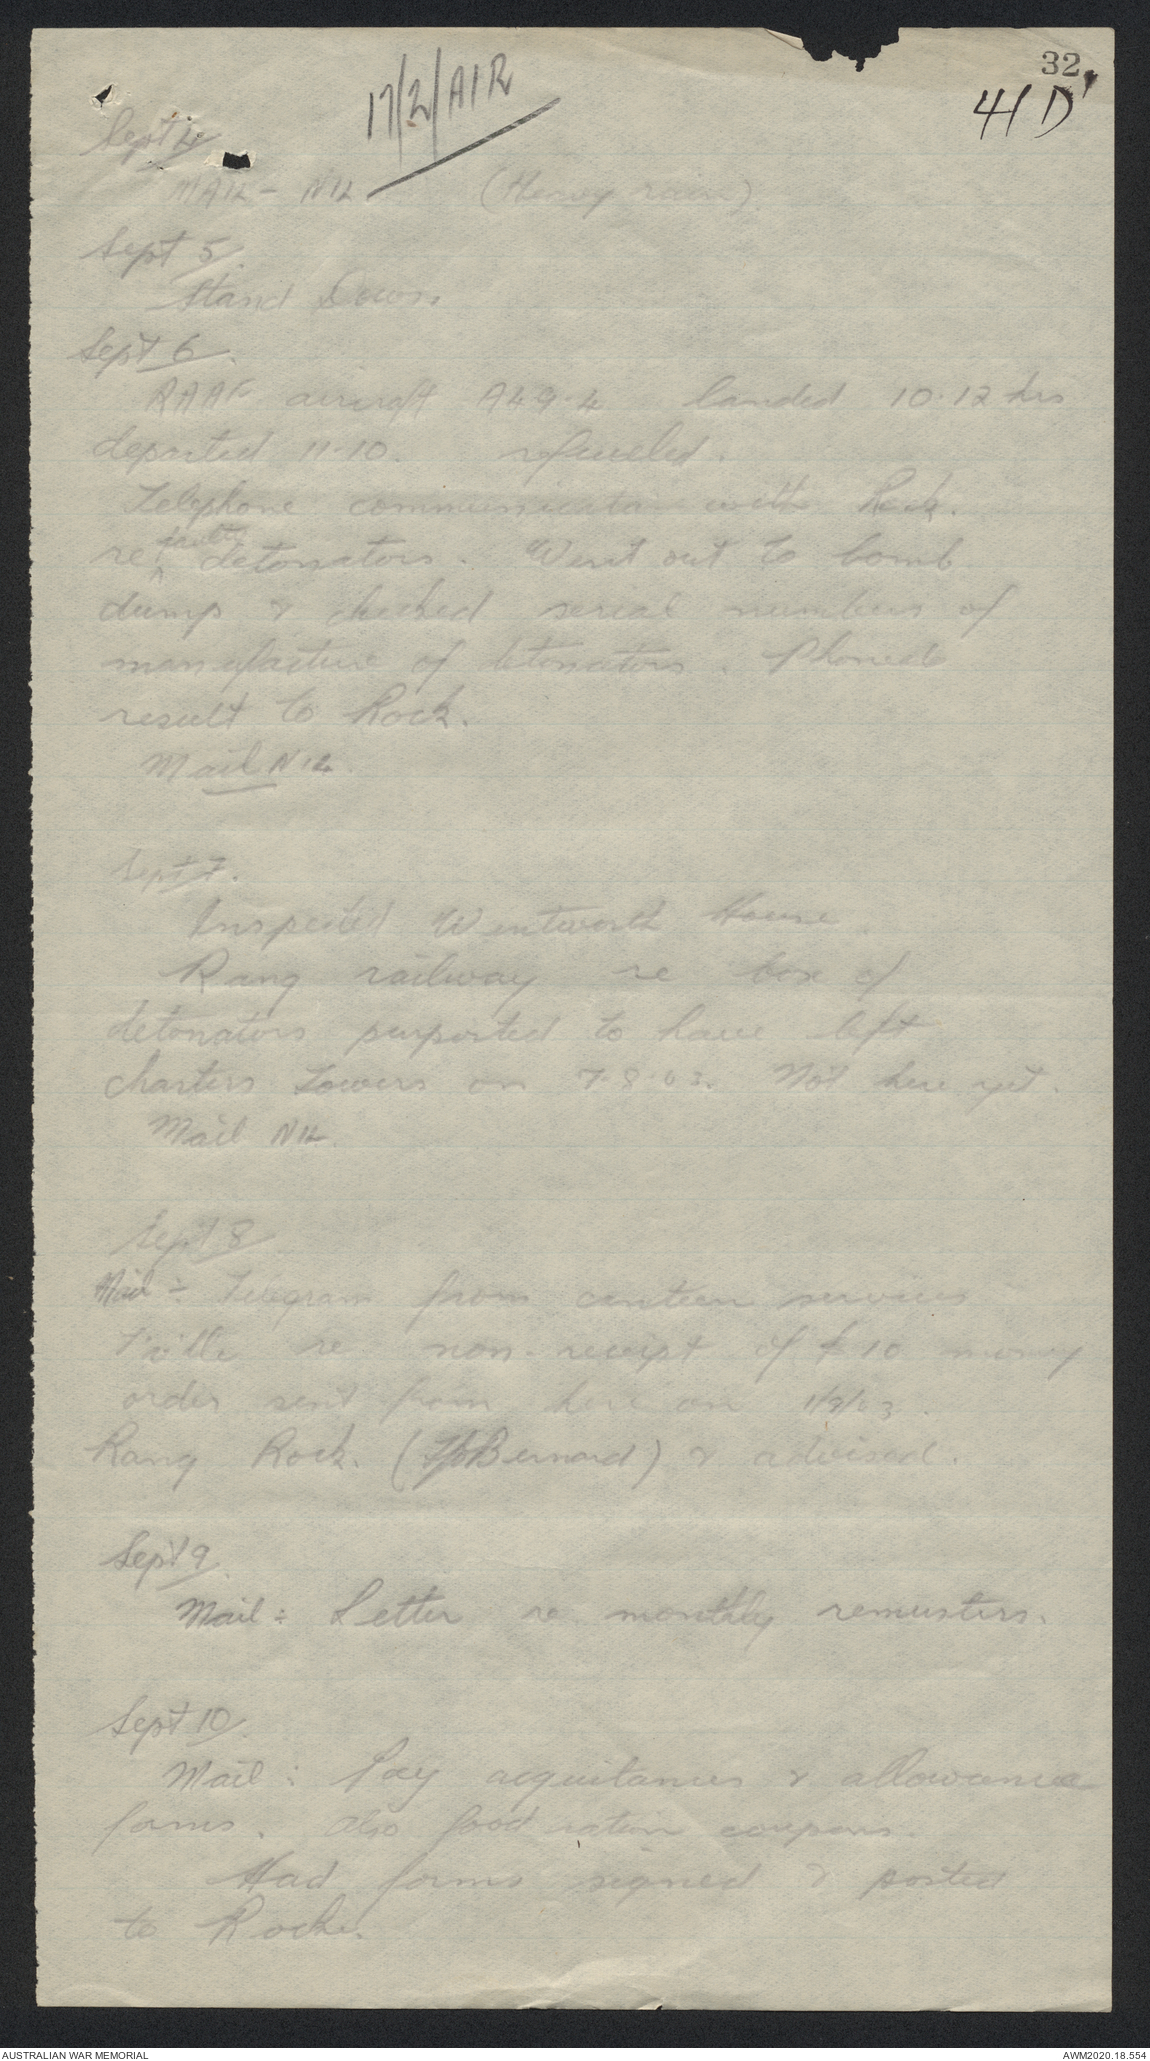 32
41 D
17/2/AIR
Sept 4
MAIL - NIL (Heavy rain)
Sept 5
Stand Down.
Sept 6.
RAAF aircraft A49-4 landed 10.12 hrs
departed 11-10. refueled.
Telephone communication with Rock.
re faulty detonators. Went out to bomb
dump & checked serial numbers of
manufacture of detonators. Phoned
result to Rock.
Mail NIL.
Sept 7.
Inspected Wentworth House.
Rang railway re box of
detonators purported to have left
Charters Towers on 7.8.43. Not here yet.
Mail NIL.
Sept 8
Mail :- Telegram from canteen services
T'ville re non-receipt of £10 money
order sent from here on
Rang Rock. ( Bernard) & advised.
Sept 9.
Mail :- Letter re monthly remusters.
Sept 10.
Mail : Pay acquitances & allowance
forms. Also food ration coupons.
Had forms signed & posted
to Rock.
AUSTRALIAN WAR MEMORIAL
AWM2020.18.554